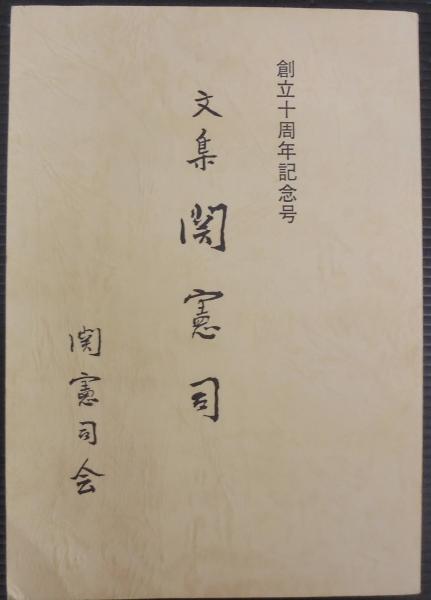 創立十周年記念号
文集 関憲司
関憲司会